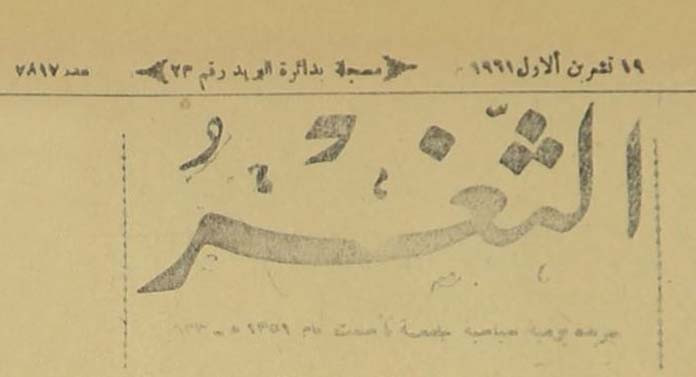 ١٩ تشرين الاول ١٩٦١ مسجلة بدائرة البريد رقم ٢٣ عدد ٧٨١٧
الثَّغْرُ
جريدة يومية صباحية جامعة تأسست عام